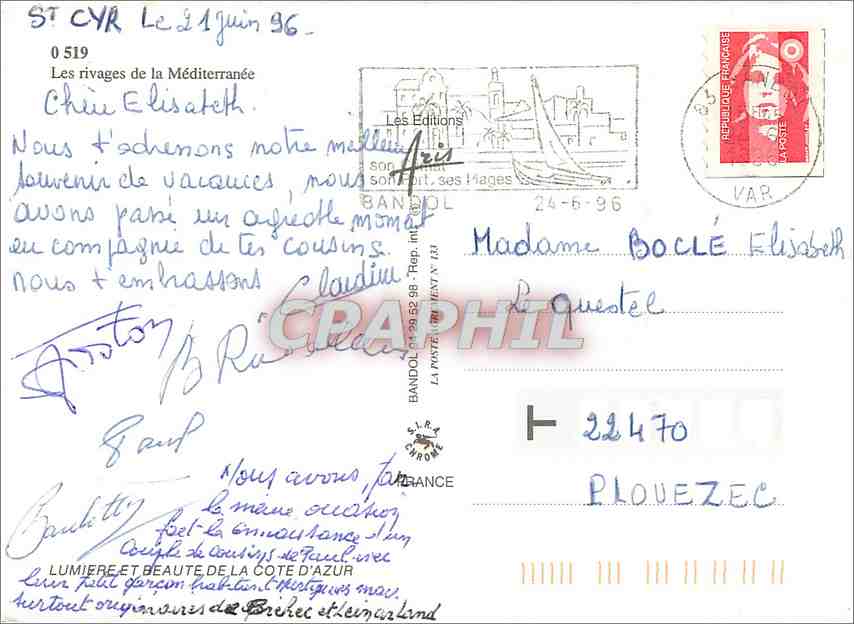 ST CYR Le 21 Juin 96
0 519
Les rivages de la Méditerranée
Chère Elisabeth.
Nous t'adressons notre meilleur
souvenir de vacances, nous
avons passé un agréable moment
en compagnie de tes cousins.
nous t'embrassons Claudine
Gaston
Paul
Paulette
Nous avons, par
la même occasion
fait la connaissance d'un
couple de cousins de Paul avec
leur petit garçon habitant Martigues mais
surtout originaires de Bréhec et
LUMIERE ET BEAUTE DE LA COTE D'AZUR
Les Editions
Aris
son
son Port, ses Plages
BANDOL 24-6-96
BANDOL 94 29 52 98 - Rep. int.
LA POSTE AGREMENT N° 133
S.I.R.A.
CHROME
FRANCE
REPUBLIQUE FRANÇAISE
LA POSTE
83
VAR
Madame BOCLÉ Elisabeth
Le Questel
22470
PLOUEZEC
CPAPHIL